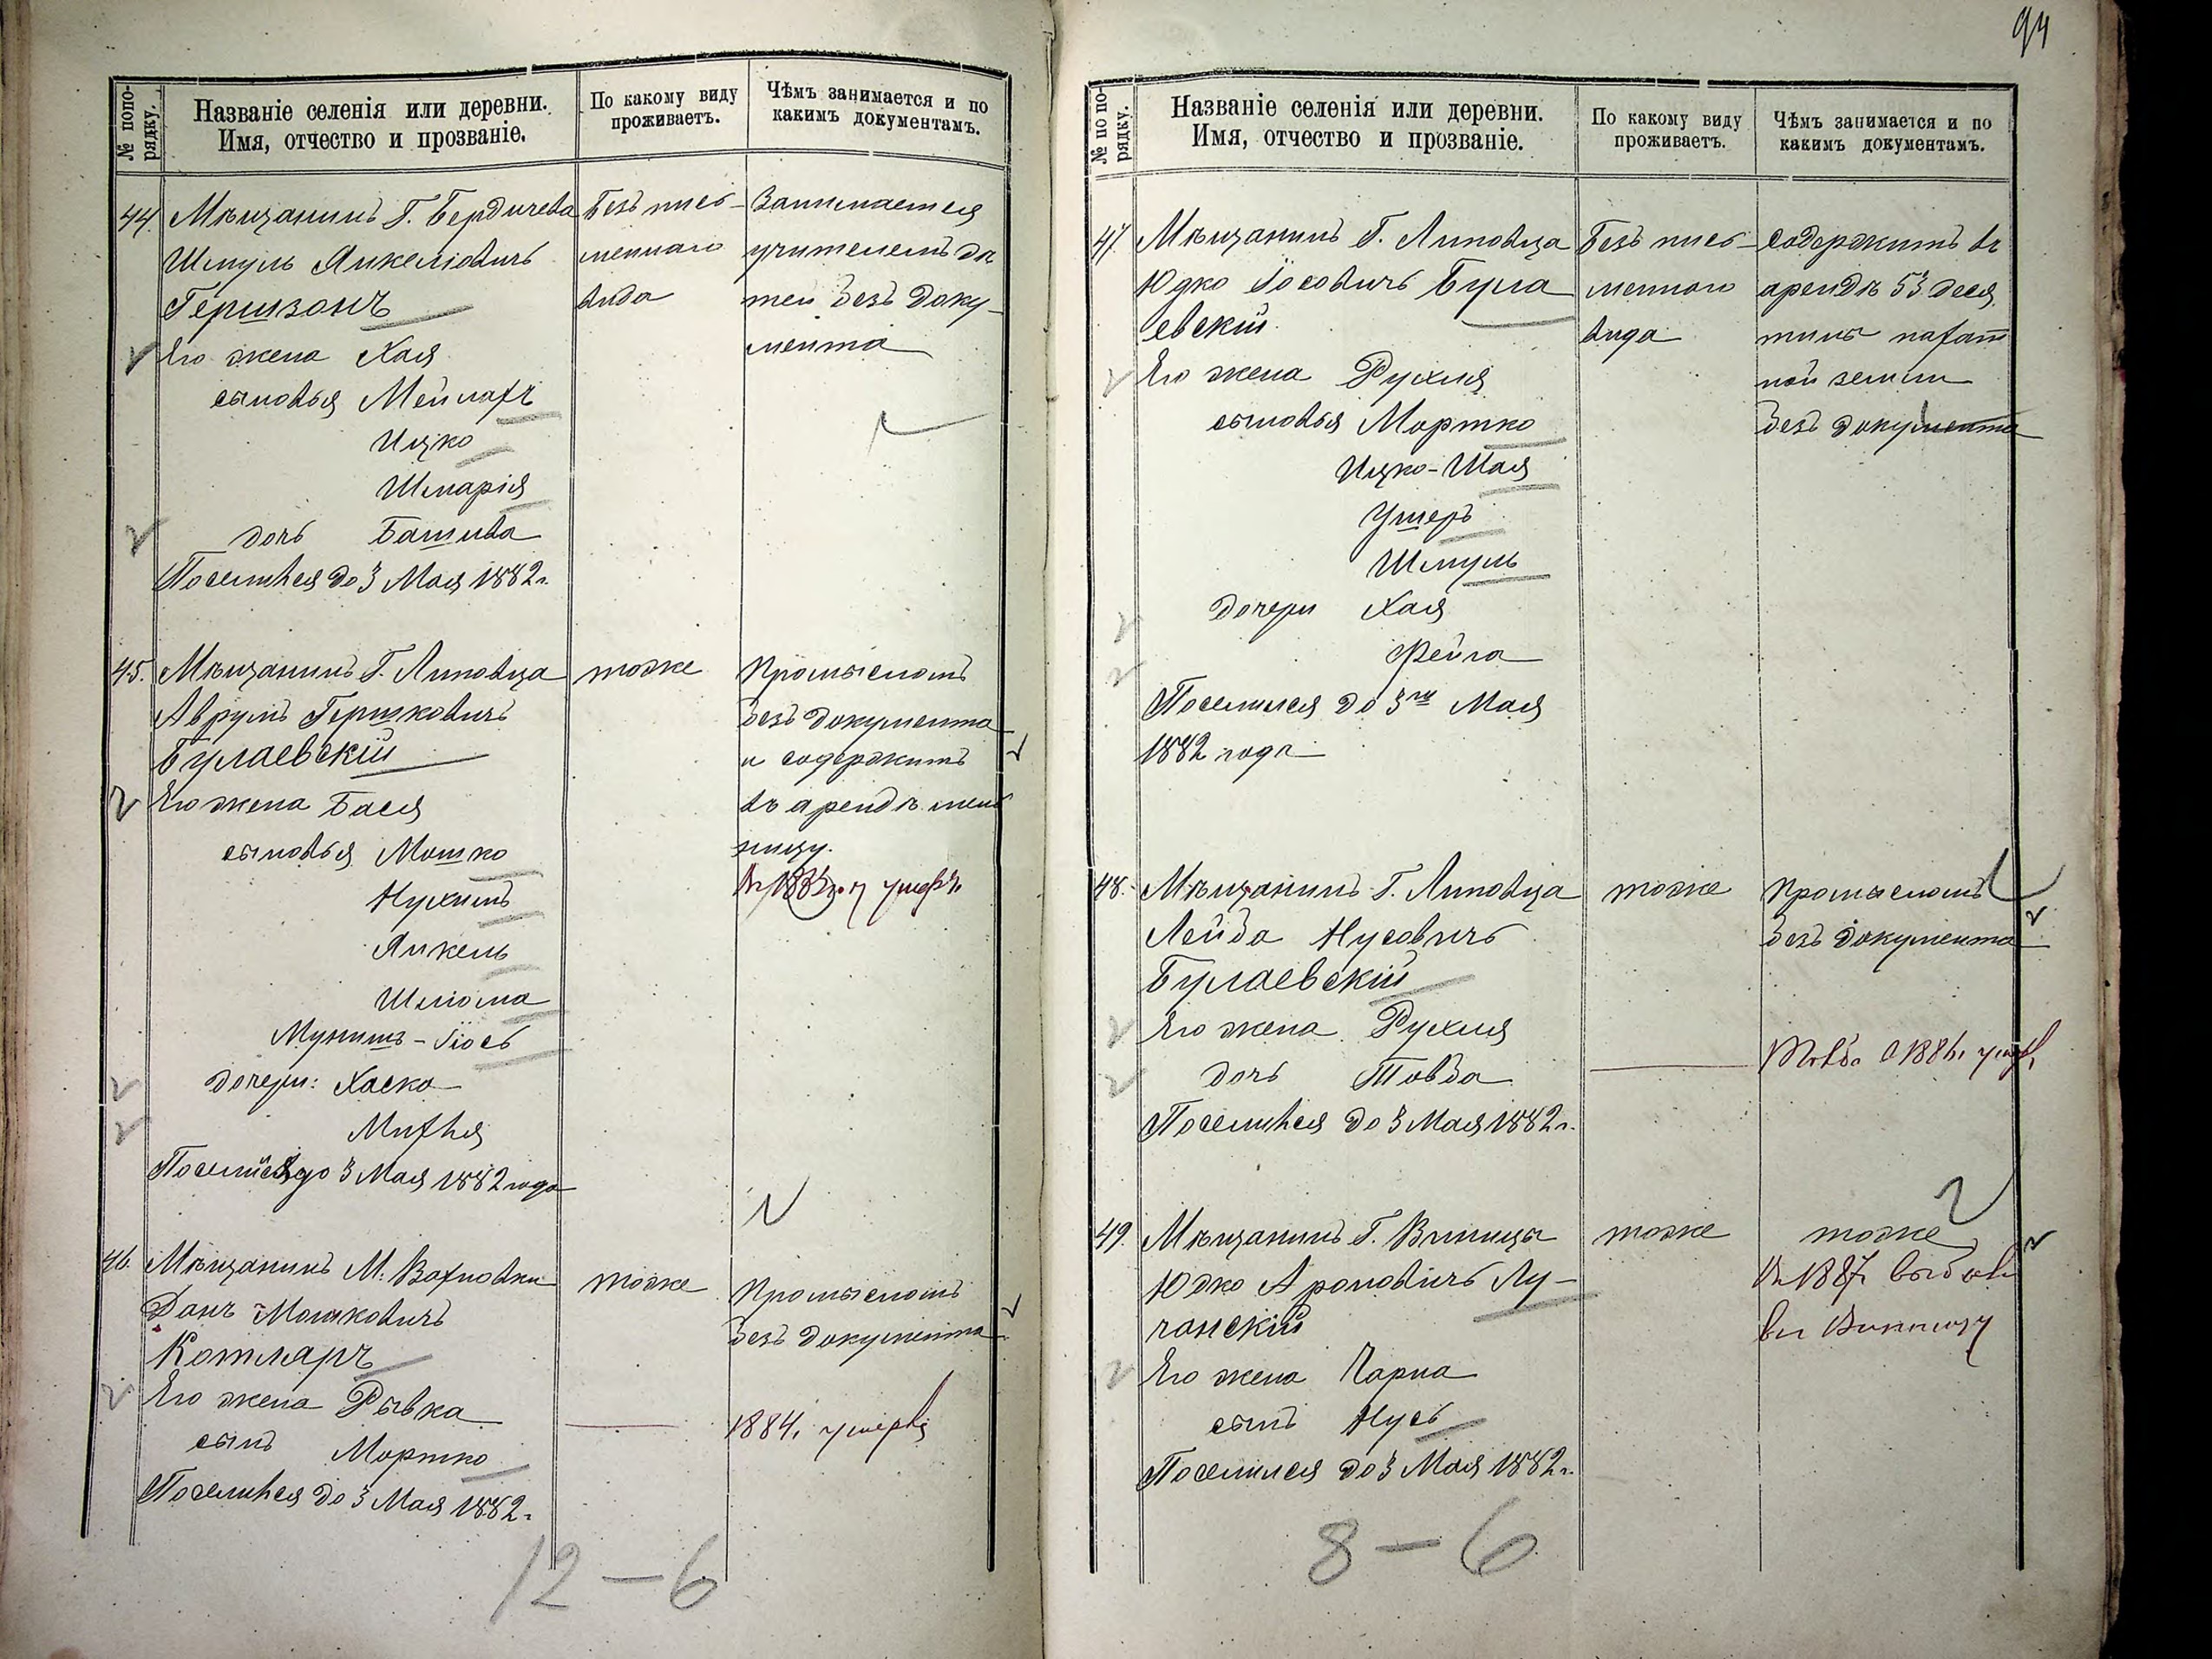 № попо-
рядку.
Названіе селенія или деревни.
Имя, отчество и прозваніе.
По какому виду
проживаетъ.
Чѣмъ занимается и по
какимъ документамъ.
44.
Мѣщанинъ Г. Бердичева
Шмуль Янкеліовичъ
Гершзонъ
Его жена Хая
сыновья Мейлахъ
Ицко
Шмарія
дочь Башива
Поселился до 3 Мая 1882 г.
Безъ пись-
меннаго
вида
Занимается
учителемъ дѣ
тей безъ доку-
мента
45.
Мѣщанинъ Г. Липовца
Аврумъ Гершковичъ
Булаевскій
Его жена Бася
сыновья Мошко
Нухимъ
Янкель
Шліома
Мунишъ-Іось
дочери: Хаска
Поселился до 3 Мая 1882 года
тоже
Промысломъ
безъ документа
и содержитъ
въ арендѣ мель
ницу.
умеръ
46.
Мѣщанинъ М. Вахновки
Данъ Мошковичъ
Котляръ
Его жена Рывка
сынъ Мортко
Поселился до 3 Мая 1882 г.
тоже
Промысломъ
безъ документа
1884 г. умерла
12-6
94
№ по по-
рядку.
Названіе селенія или деревни.
Имя, отчество и прозваніе.
По какому виду
проживаетъ.
Чѣмъ занимается и по
какимъ документамъ.
47.
Мѣщанинъ Г. Липовца
Юдко Іосовичъ Була
евскій
Его жена Рухля
сыновья Мортко
Ицко-Шая
Ушеръ
Шмуль
дочери Хая
Фейга
Поселился до 3го Мая
1882 года
Безъ пись-
меннаго
вида
Содержитъ въ
арендѣ 53 деся
тины пахат
ной земли
безъ документа
48.
Мѣщанинъ Г. Липовца
Лейба Нусовичъ
Булаевскій
Его жена Рухля
дочь Товба
Поселился до 3 Мая 1882 г.
тоже
Промысломъ
безъ документа
Товба 1886 г.
49.
Мѣщанинъ Г. Виницы
Юдко Ароновичъ Лу-
чанскій
Его жена Чарна
сынъ Нусь
Поселился до 3 Мая 1882 г.
тоже
тоже
въ 1887 г. выбылъ
въ Винницу
8-6